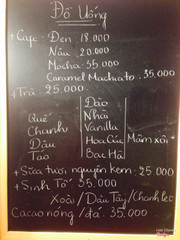 Đồ Uống
+ Cafe - Đen 18.000
Nâu 20.000
Mocha - 35.000
Caramel Machiato 35.000
+ Trà : 25.000
Quế
Chanh
Dâu
Táo
Đào
Nhài
Vanilla
Hoa Cúc
Bạc Hà
Mâm xôi
+ Sữa tươi nguyên kem : 25.000
+ Sinh Tố 35.000
Xoài / Dâu Tây / Chanh leo
Cacao nóng / đá 35.000